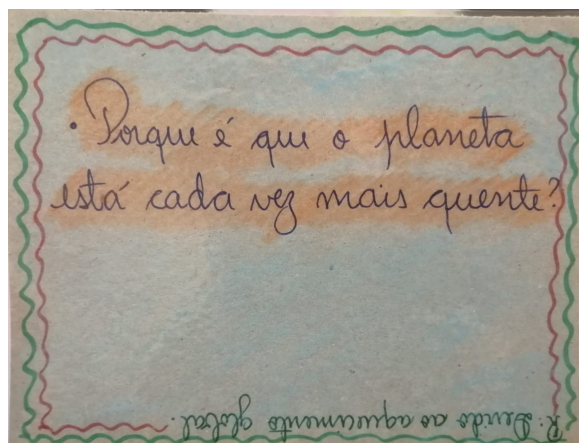 • Porque é que o planeta
está cada vez mais quente?
R: Devido ao aquecimento global.